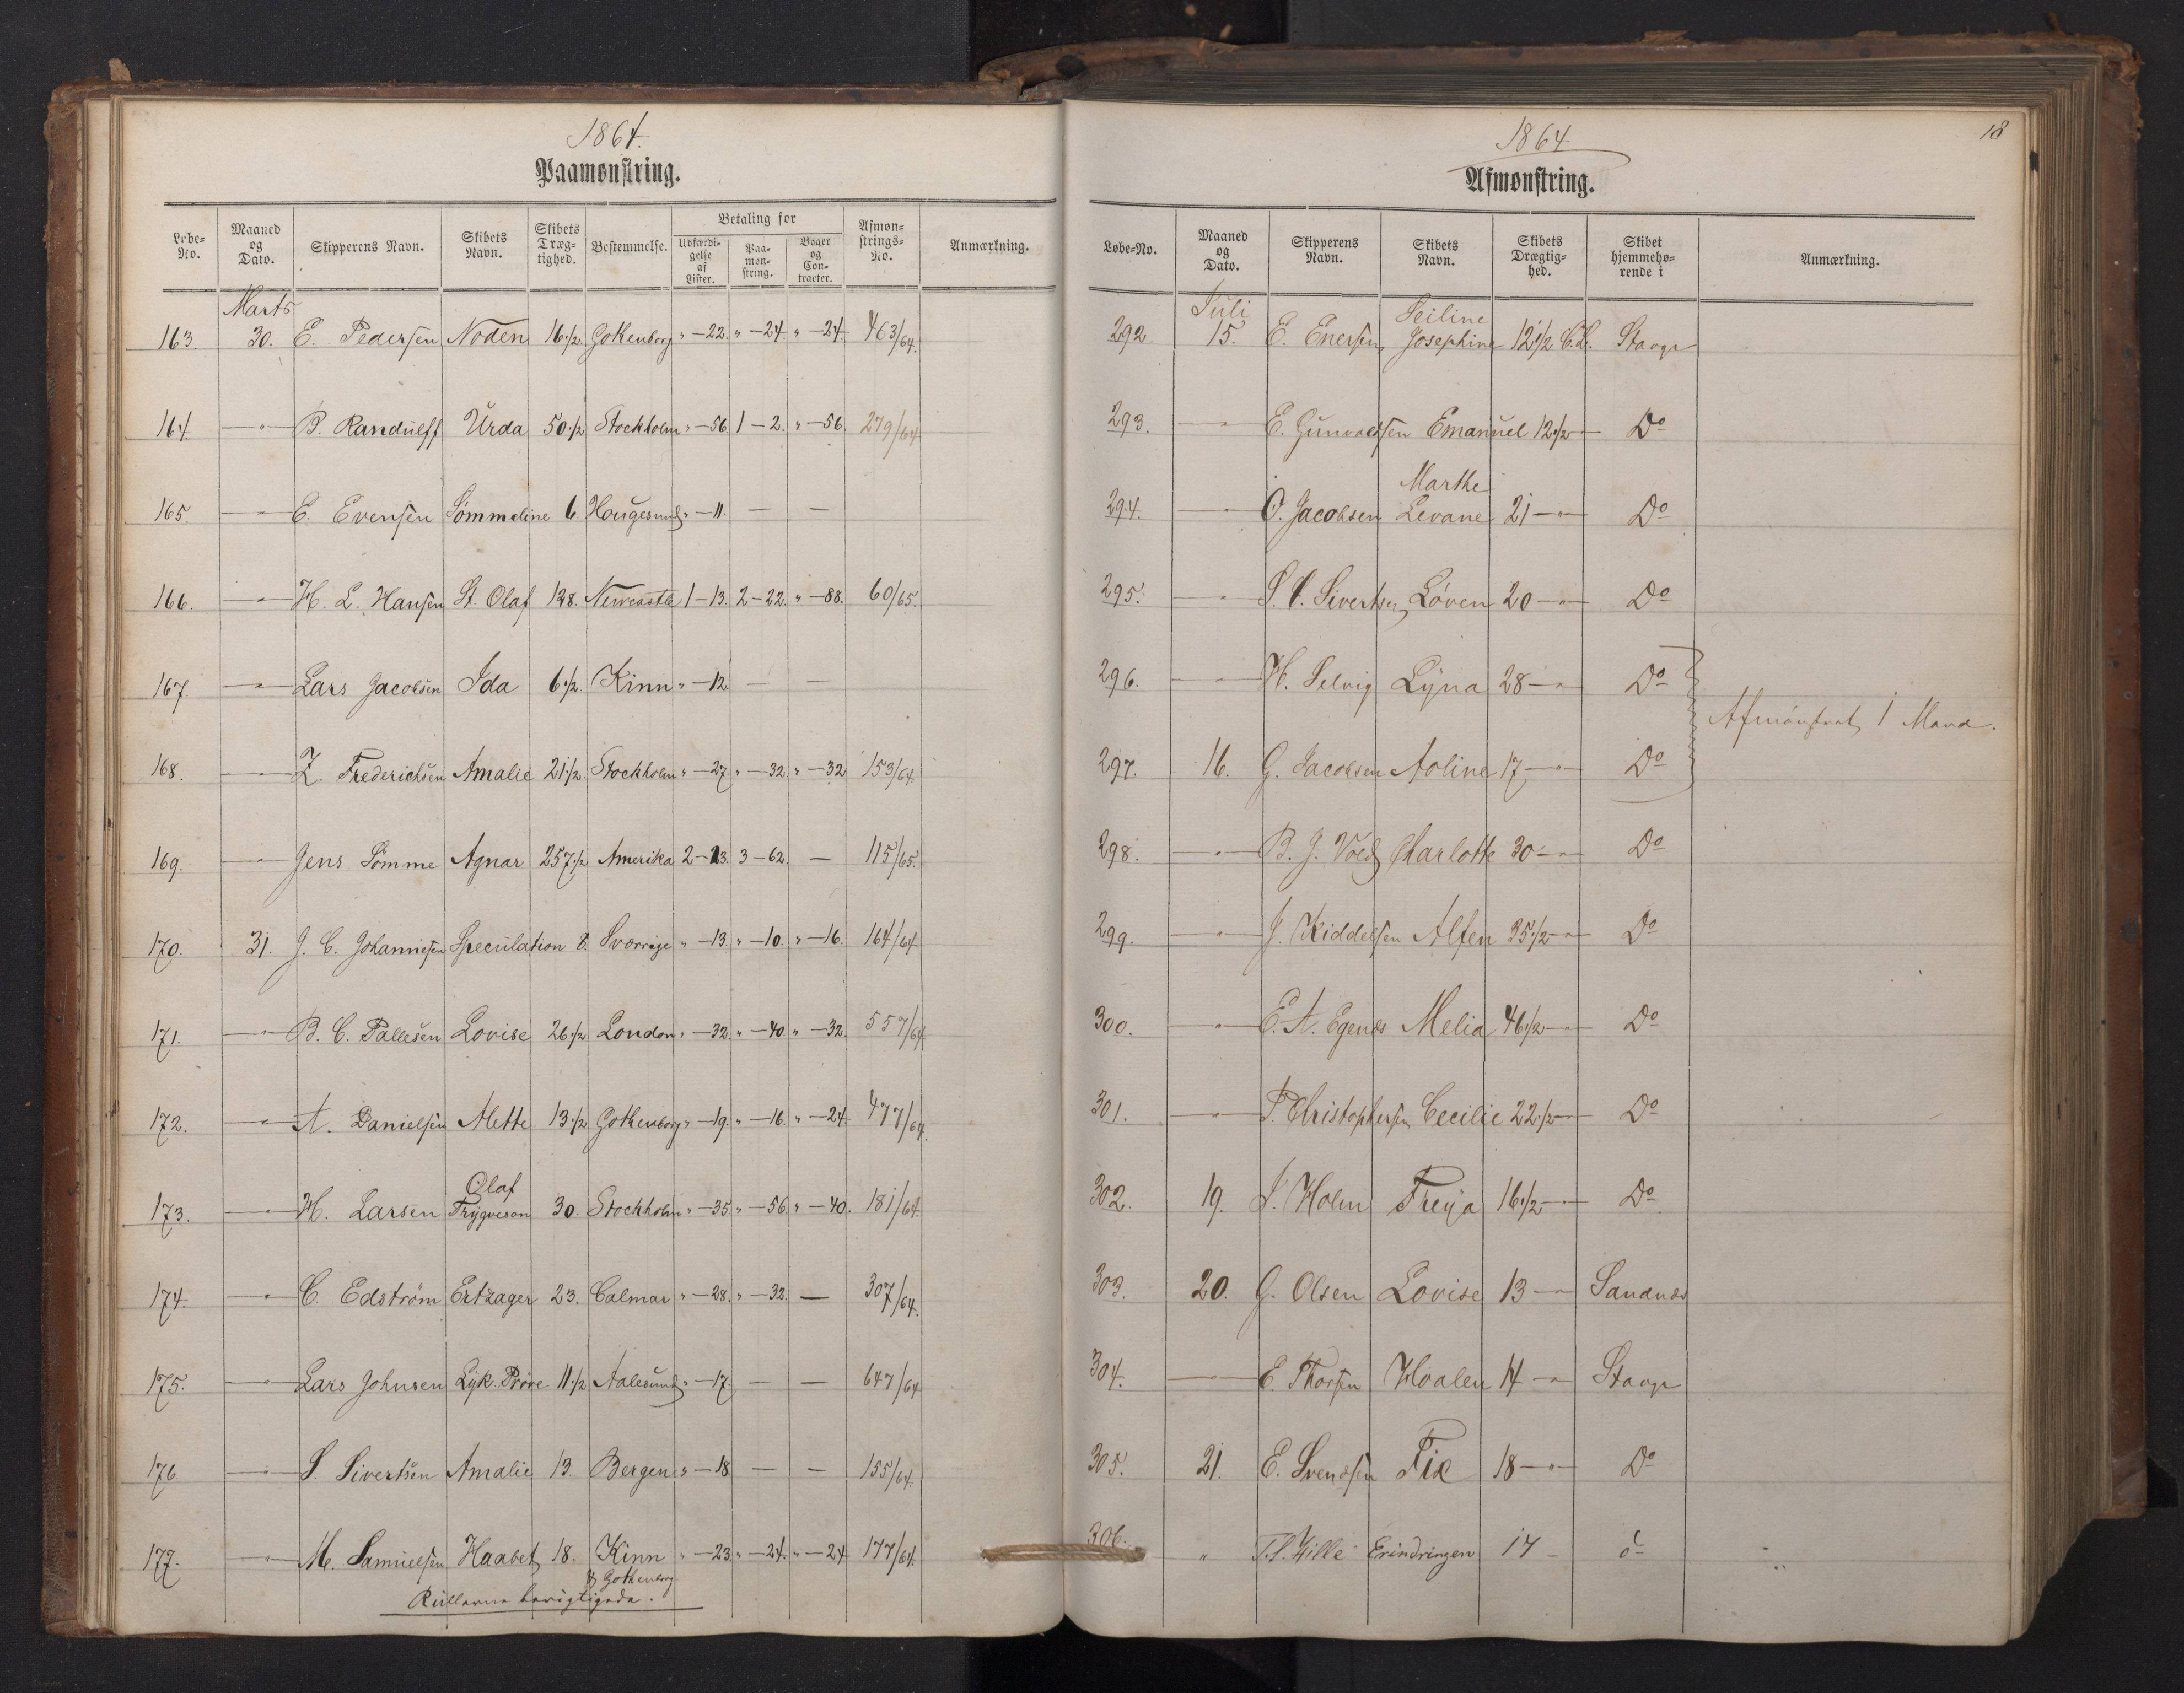 1864.
Paamønstring.
Løbe-No. Maaned og Dato. Skipperens Navn. Skibets Navn. Skibets Dræg-tighed. Bestemmelse. Betaling for Udfærdi-gelse af Lister. Paa-møn-string. Bøger og Con-tracter. Afmøn-strings-No. Anmærkning.
Marts
163. 30. E. Pedersen Noden 16 1/2 Gothenborg " — 22. " — 24. " — 24. 463/64.
164. — " — B. Randulff Urda 50 1/2 Stockholm " — 56. 1 — 2. " — 56. 279/64
165. — " — E. Evensen Sømmeline 6. Hougesund " — 11. — —
166. — " — H. L. Hansen St. Olaf 138. Newcastle 1 — 13. 2 — 22. " — 88. 60/65.
167. — " — Lars Jacobsen Ida 6 1/2. Kinn " — 12. — —
168. — " — Z. Frederichsen Amalie 21 1/2. Stockholm " — 27. " — 32. " — 32 153/64
169. — " — Jens Sømme Agnar 257 1/2 Amerika 2 — 23. 3 — 62. — 115/65.
170. 31. J. C. Johannesen Speculation 8. Sverrige " — 13. " — 10. " — 16. 164/64
171. — " — B. C. Pallesen Lovise 26 1/2 London " — 32. " — 40. " — 32. 557/64
172. — " — A. Danielsen Mette 13 1/2 Gothenborg " — 19. " — 16. " — 24. 477/64.
173. — " — H. Larsen Olaf Trygveson 30. Stockholm " — 35. " — 56. " — 40. 181/64.
174. — " — C. Edström Ertzager 23. Calmar " — 28. " — 32. — 307/64.
175. — " — Lars Johnsen Lyk. Prøve 11 1/2 Aalesund " — 17. — — 647/64
176 — " — S. Sivertsen Amalie 13. Bergen " — 18 — — 155/64.
177. — " — M. Samuelsen Haabet 18. Kinn " — 23. " — 24. " — 24 177/64.
& Gothenborg
Rullerne berigtigede.
18
1864
Afmønstring.
Løbe-No. Maaned og Dato. Skipperens Navn. Skibets Navn. Skibets Drægtig-hed. Skibet hjemmehø-rende i Anmærkning.
Juli
292. 15. E. Enersen Seiline Josephine 12 1/2 C.L. Stavgr
293. — " — E. Gunvaldsen Emanuel 12 1/2 — Do
294. — " — O. Jacobsen Marthe Levane 21 — " — Do
295. — " — Sivertsen Løven 20 — " — Do
296. — " — H. Selvig Lyna 28 — " — Do
Afmønstret 1 Mand.
297. 16. G. Jacobsen Aoline 17 — " — Do
298. — " — B. J. Vold Charlotte 30 — " — Do
299. — " — J. Kiddelsen Alfen 35 1/2 — " — Do
300. — " — E. A. Egenæs Melia 46 1/2 — " — Do
301. — " — P. Christophersen Cecilie 22 1/2 — " — Do
302. 19. J. Holm Freya 16 1/2 — " — Do
303. 20. G. Olsen Lovise 13 — " — Sandnæs
304. — " — E. Thorsen Hvalen 14 — " — Stavgr
305. 21. E. Svendsen Fix 18 — " — Do
306. " Hille Erindringen 17 —